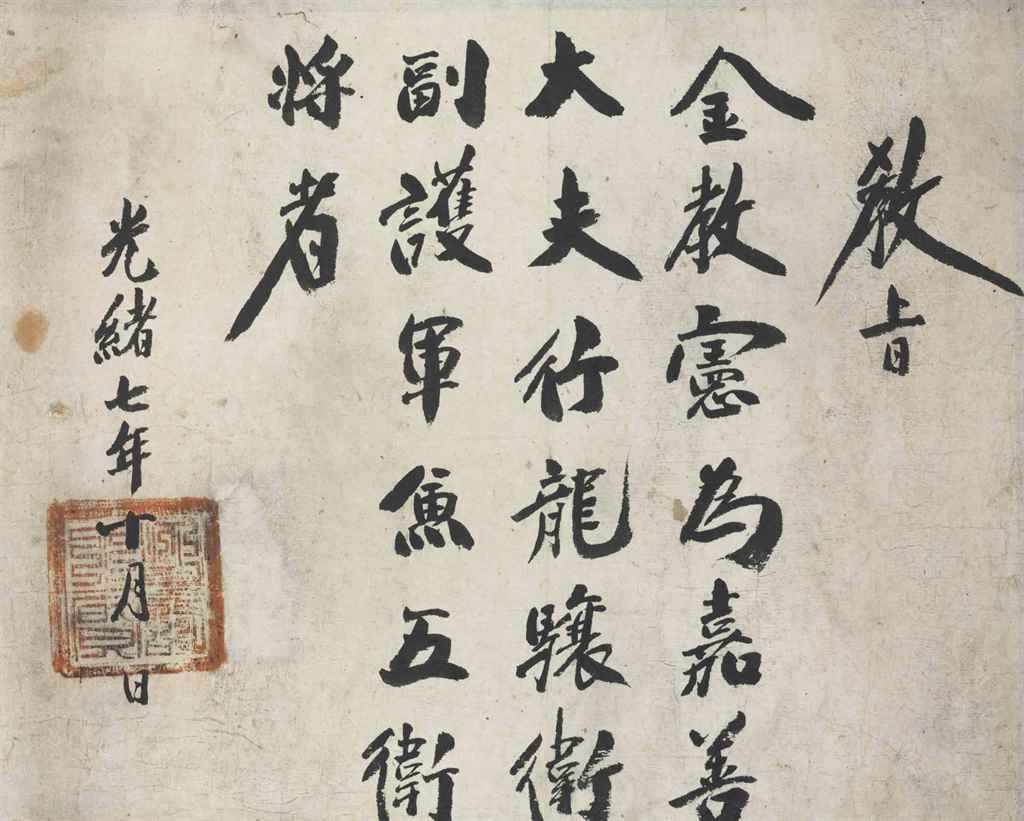 教旨
金教憲為嘉善
大夫行龍驤衛
副護軍兼五衛
將者
光緒七年十月 日